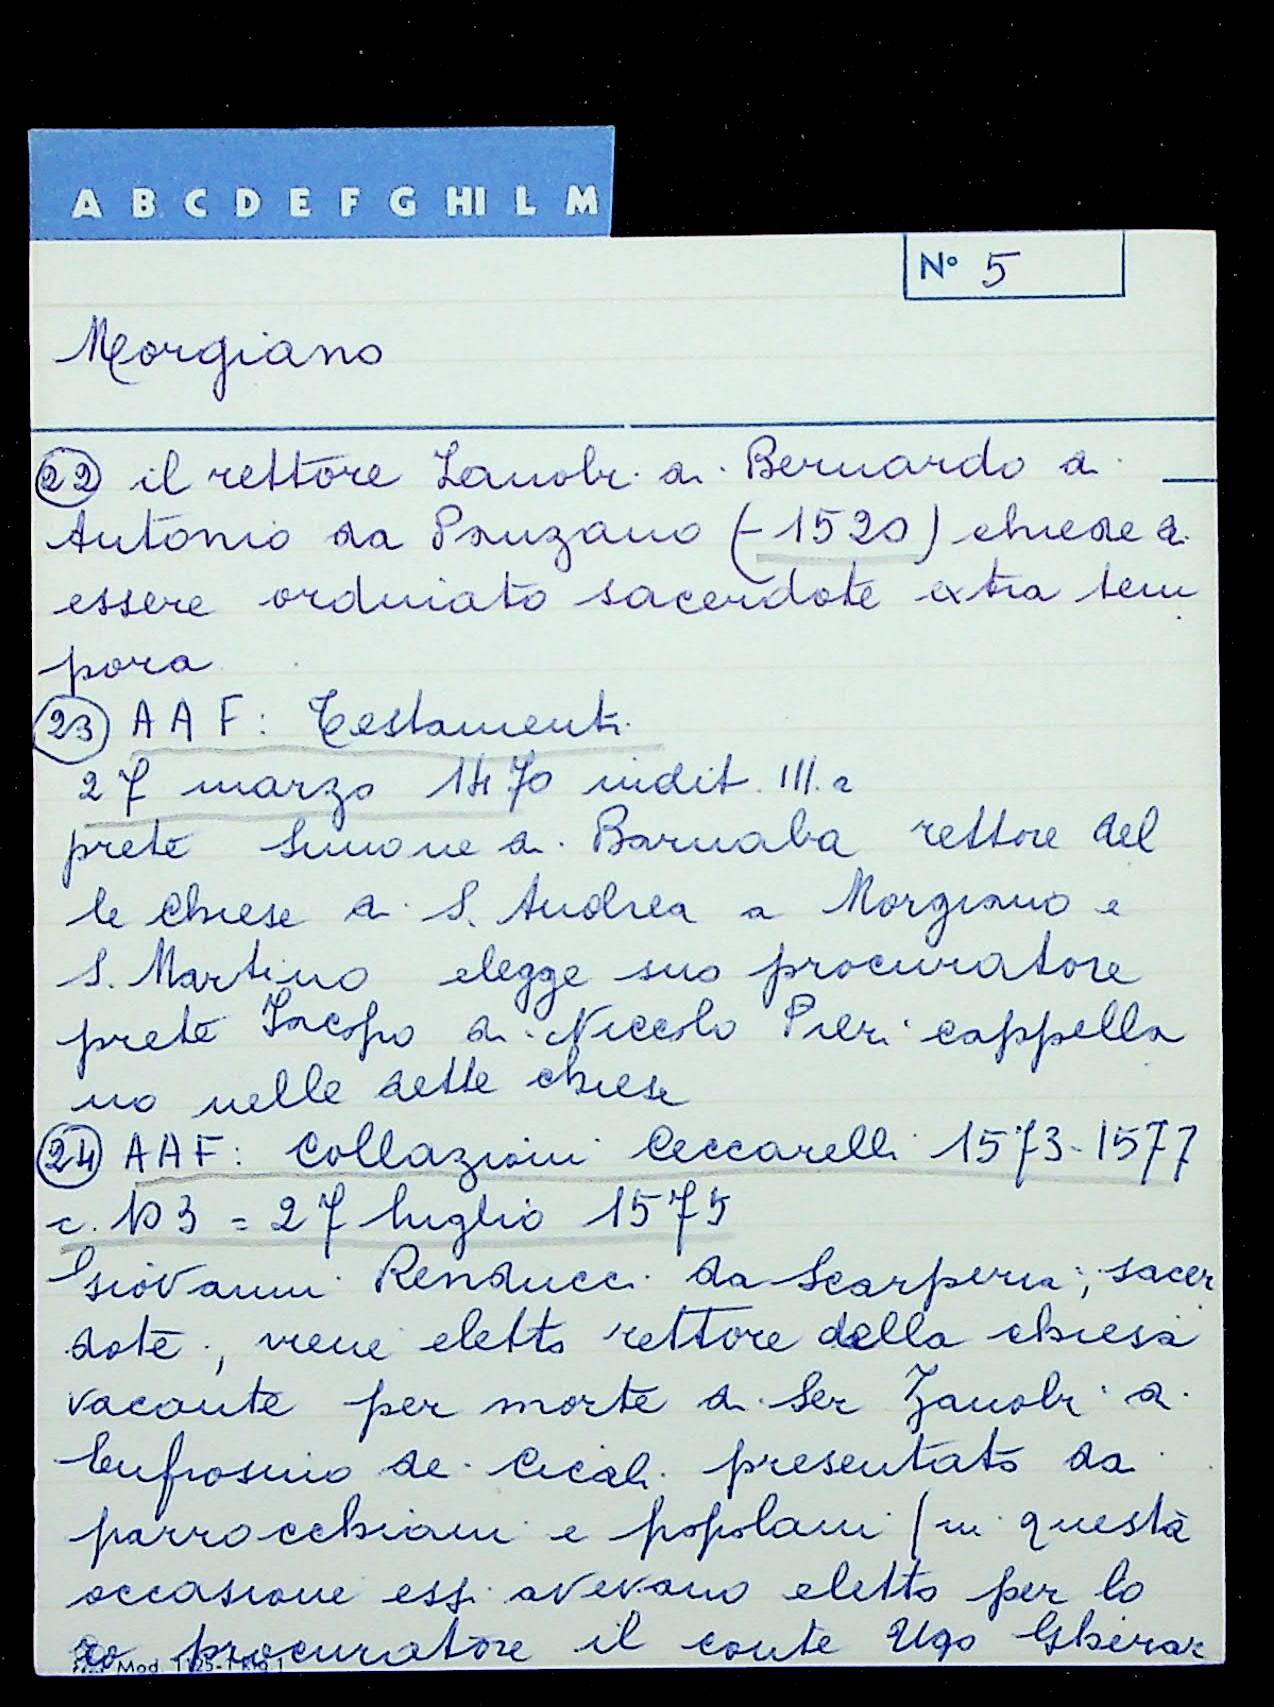 A B C D E F G HI L M
N° 5
Morgiano
22 il rettore Zanobi di Bernardo di
Antonio da Panzano (-1520) chiede di
essere ordinato sacerdote extra tem
pora
23 AAF: Testamenti
27 marzo 1470 indit. III.a
prete Simone di Barnaba rettore del
le chiese di S. Andrea a Morgiano e
S. Martino elegge suo procuratore
prete Jacopo di Niccolo Pieri cappella
no nelle dette chiese
24 AAF: Collazioni Ceccarelli 1573-1577
c. 103 = 27 luglio 1575
Giovanni Renducci da Scarperia, sacer
dote, viene eletto rettore della chiesa
vacante per morte di Ser Zanobi di
Eufrosino de Cicali presentato da
parrocchiani e popolani (in questa
occasione essi avevano eletto per lo
ro procuratore il conte Ugo Gherar